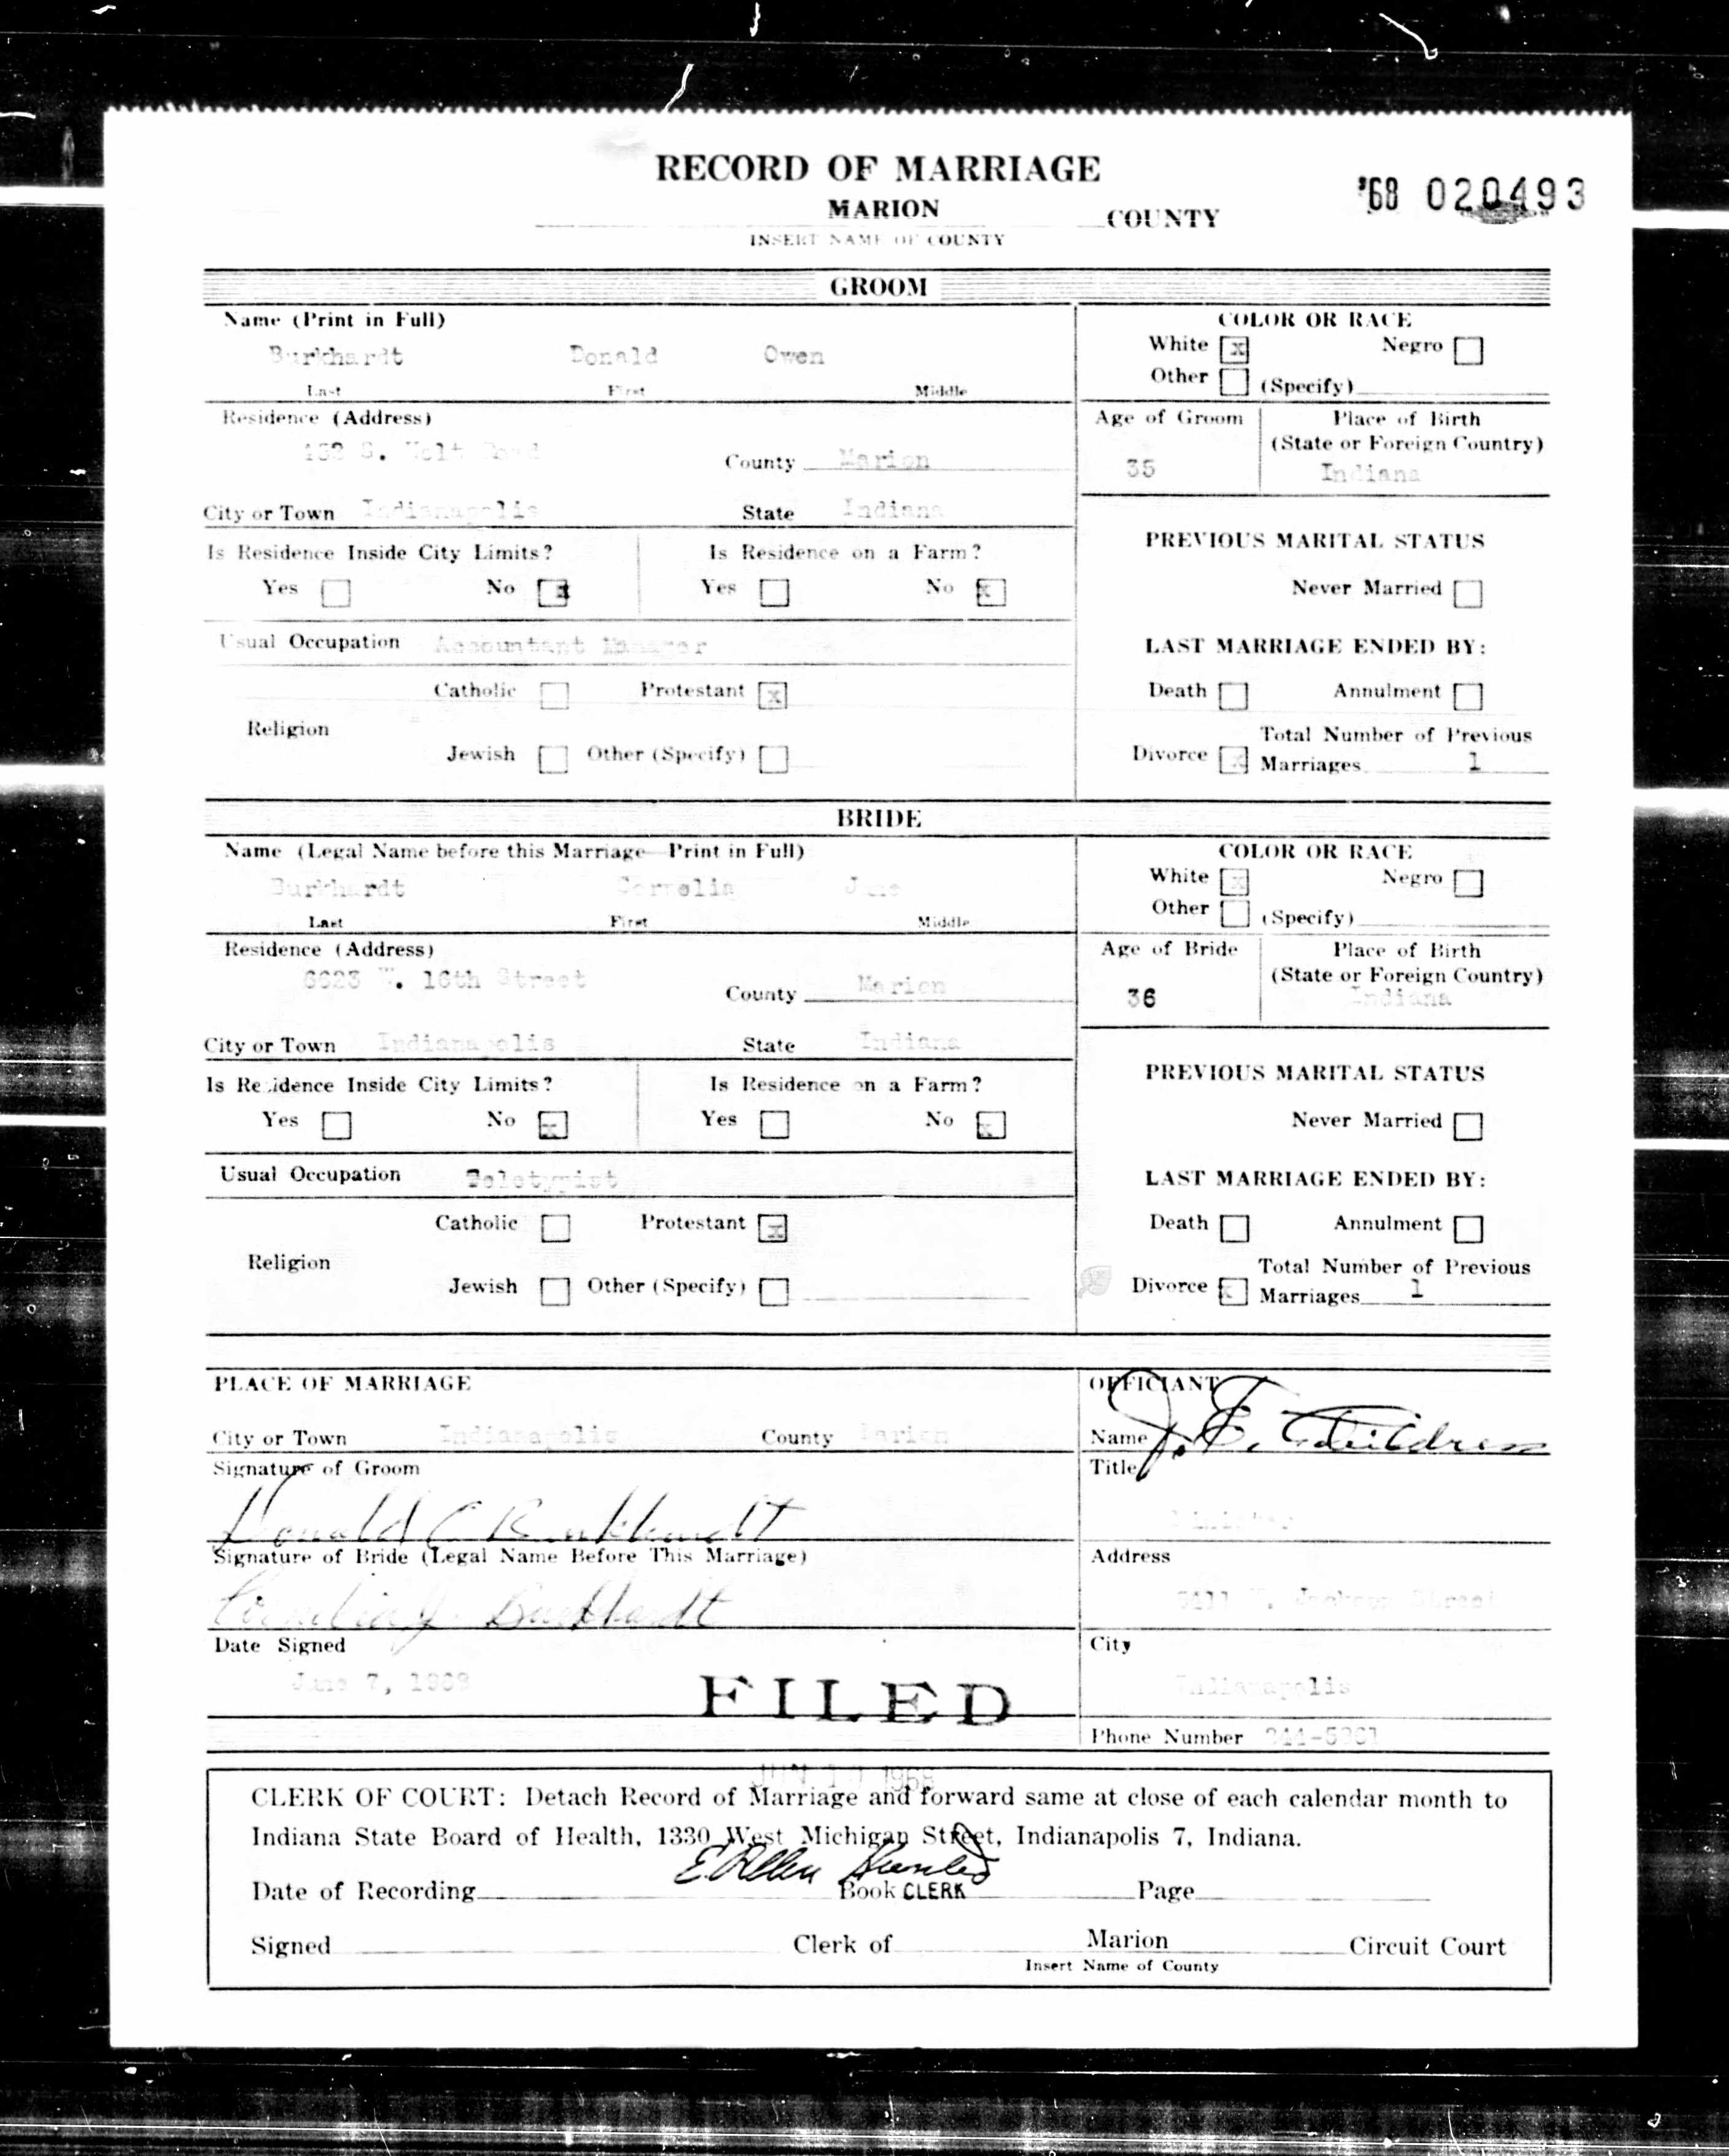 RECORD OF MARRIAGE
'68 020493
MARION COUNTY
INSERT NAME OF COUNTY
GROOM
Name (Print in Full)
Burkhardt Donald Owen
Last First Middle
COLOR OR RACE
White x Negro
Other (Specify)
Residence (Address)
S. Holt Road County Marion
City or Town Indianapolis State Indiana
Age of Groom Place of Birth
(State or Foreign Country)
35 Indiana
Is Residence Inside City Limits? Is Residence on a Farm?
Yes No x Yes No x
PREVIOUS MARITAL STATUS
Never Married
Usual Occupation Accountant Manager
LAST MARRIAGE ENDED BY:
Catholic Protestant x
Death Annulment
Religion
Jewish Other (Specify)
Total Number of Previous
Divorce x Marriages 1
BRIDE
Name (Legal Name before this Marriage—Print in Full)
Burkhardt Cornelia
Last First Middle
COLOR OR RACE
White x Negro
Other (Specify)
Residence (Address)
6623 W. 16th Street County Marion
City or Town Indianapolis State Indiana
Age of Bride Place of Birth
(State or Foreign Country)
36 Indiana
Is Residence Inside City Limits? Is Residence on a Farm?
Yes No x Yes No x
PREVIOUS MARITAL STATUS
Never Married
Usual Occupation Teletypist
LAST MARRIAGE ENDED BY:
Catholic Protestant x
Death Annulment
Religion
Jewish Other (Specify)
Total Number of Previous
Divorce x Marriages 1
PLACE OF MARRIAGE
City or Town Indianapolis County Marion
Signature of Groom
Donald O Burkhardt
Signature of Bride (Legal Name Before This Marriage)
Cornelia J. Burkhardt
Date Signed
June 7, 1968
OFFICIANT
Name J. E. Childress
Title
Minister
Address
W. Jackson Street
City
Indianapolis
Phone Number
FILED
JUN 1968
CLERK OF COURT: Detach Record of Marriage and forward same at close of each calendar month to
Indiana State Board of Health, 1330 West Michigan Street, Indianapolis 7, Indiana.
E. Allen Hunter
Date of Recording Book CLERK Page
Signed Clerk of Marion Circuit Court
Insert Name of County